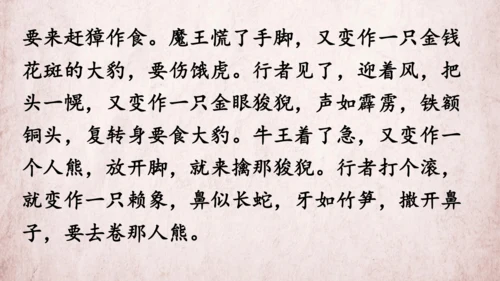 要来赶獐作食。魔王慌了手脚，又变作一只金钱
花斑的大豹，要伤饿虎。行者见了，迎着风，把
头一幌，又变作一只金眼狻猊，声如霹雳，铁额
铜头，复转身要食大豹。牛王着了急，又变作一
个人熊，放开脚，就来擒那狻猊。行者打个滚，
就变作一只赖象，鼻似长蛇，牙如竹笋，撒开鼻
子，要去卷那人熊。